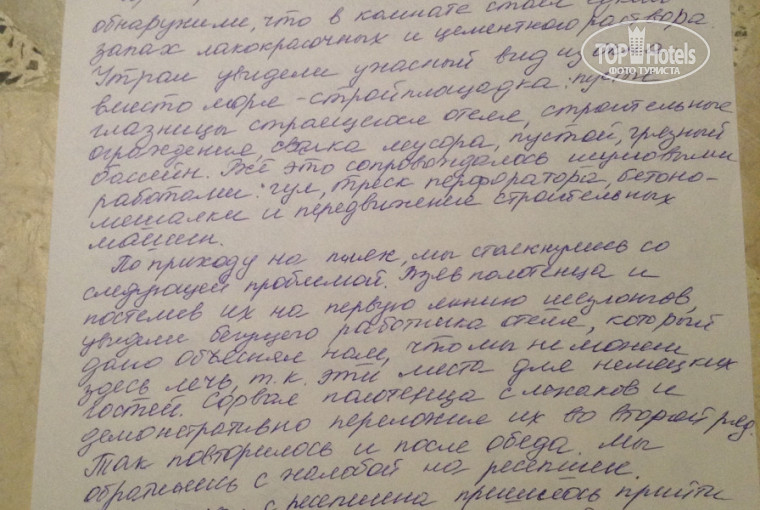 обнаружили, что в комнате стоял
запах лакокрасочных и цементного раствора.
Утром увидели ужасный вид из
вместо моря - стройплощадка: пустые
глазницы строящегося отеля, строительные
ограждения, свалка мусора, пустой, грязный
бассейн. Всё это сопровождалось шумовыми
работами: гул, треск перфоратора, бетоно-
мешалки и передвижение строительных
машин.
По приходу на пляж, мы столкнулись со
следующей проблемой. Взяв полотенца и
постелив их на первую линию шезлонгов,
увидели бегущего работника отеля, который
дало объяснял нам, что мы не можем
здесь лечь, т.к. эти места для немецких
гостей. Сорвал полотенца с лежаков и
демонстративно переложил их во второй ряд.
Так повторилось и после обеда. Мы
обратились с жалобой на ресепшен.
с ресепшена пришлось прийти
TOP Hotels
ФОТО ТУРИСТА